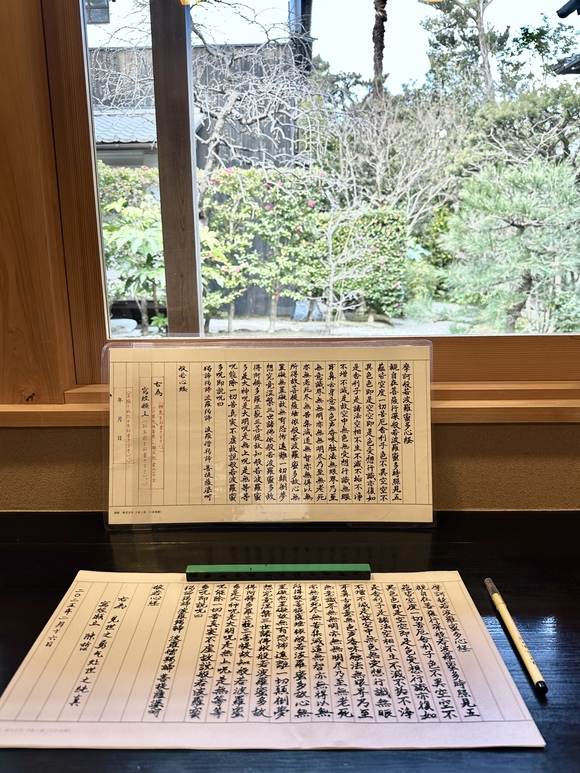 摩訶般若波羅蜜多心経
観自在菩薩行深般若波羅蜜多時照見五
蘊皆空度一切苦厄舎利子色不異空空不
異色色即是空空即是色受想行識亦復如
是舎利子是諸法空相不生不滅不垢不浄
不増不減是故空中無色無受想行識無眼
耳鼻舌身意無色声香味触法無眼界乃至
無意識界無無明亦無無明尽乃至無老死
亦無老死尽無苦集滅道無智亦無得以無
所得故菩提薩埵依般若波羅蜜多故心無
罣礙無罣礙故無有恐怖遠離一切顛倒夢
想究竟涅槃三世諸仏依般若波羅蜜多故
得阿耨多羅三藐三菩提故知般若波羅蜜
多是大神呪是大明呪是無上呪是無等等
呪能除一切苦真実不虚故説般若波羅蜜
多呪即説呪曰
羯諦羯諦 波羅羯諦 波羅僧羯諦 菩提薩婆訶
般若心経
右為
写経願上
年 月 日
摩訶般若波羅蜜多心経
観自在菩薩行深般若波羅蜜多時照見五
蘊皆空度一切苦厄舎利子色不異空空不
異色色即是空空即是色受想行識亦復如
是舎利子是諸法空相不生不滅不垢不浄
不増不減是故空中無色無受想行識無眼
耳鼻舌身意無色声香味触法無眼界乃至
無意識界無無明亦無無明尽乃至無老死
亦無老死尽無苦集滅道無智亦無得以無
所得故菩提薩埵依般若波羅蜜多故心無
罣礙無罣礙故無有恐怖遠離一切顛倒夢
想究竟涅槃三世諸仏依般若波羅蜜多故
得阿耨多羅三藐三菩提故知般若波羅蜜
多是大神呪是大明呪是無上呪是無等等
呪能除一切苦真実不虚故説般若波羅蜜
多呪即説呪曰
羯諦羯諦 波羅羯諦 波羅僧羯諦 菩提薩婆訶
般若心経
右為
写経願上 陳
二〇二五年二月十六日